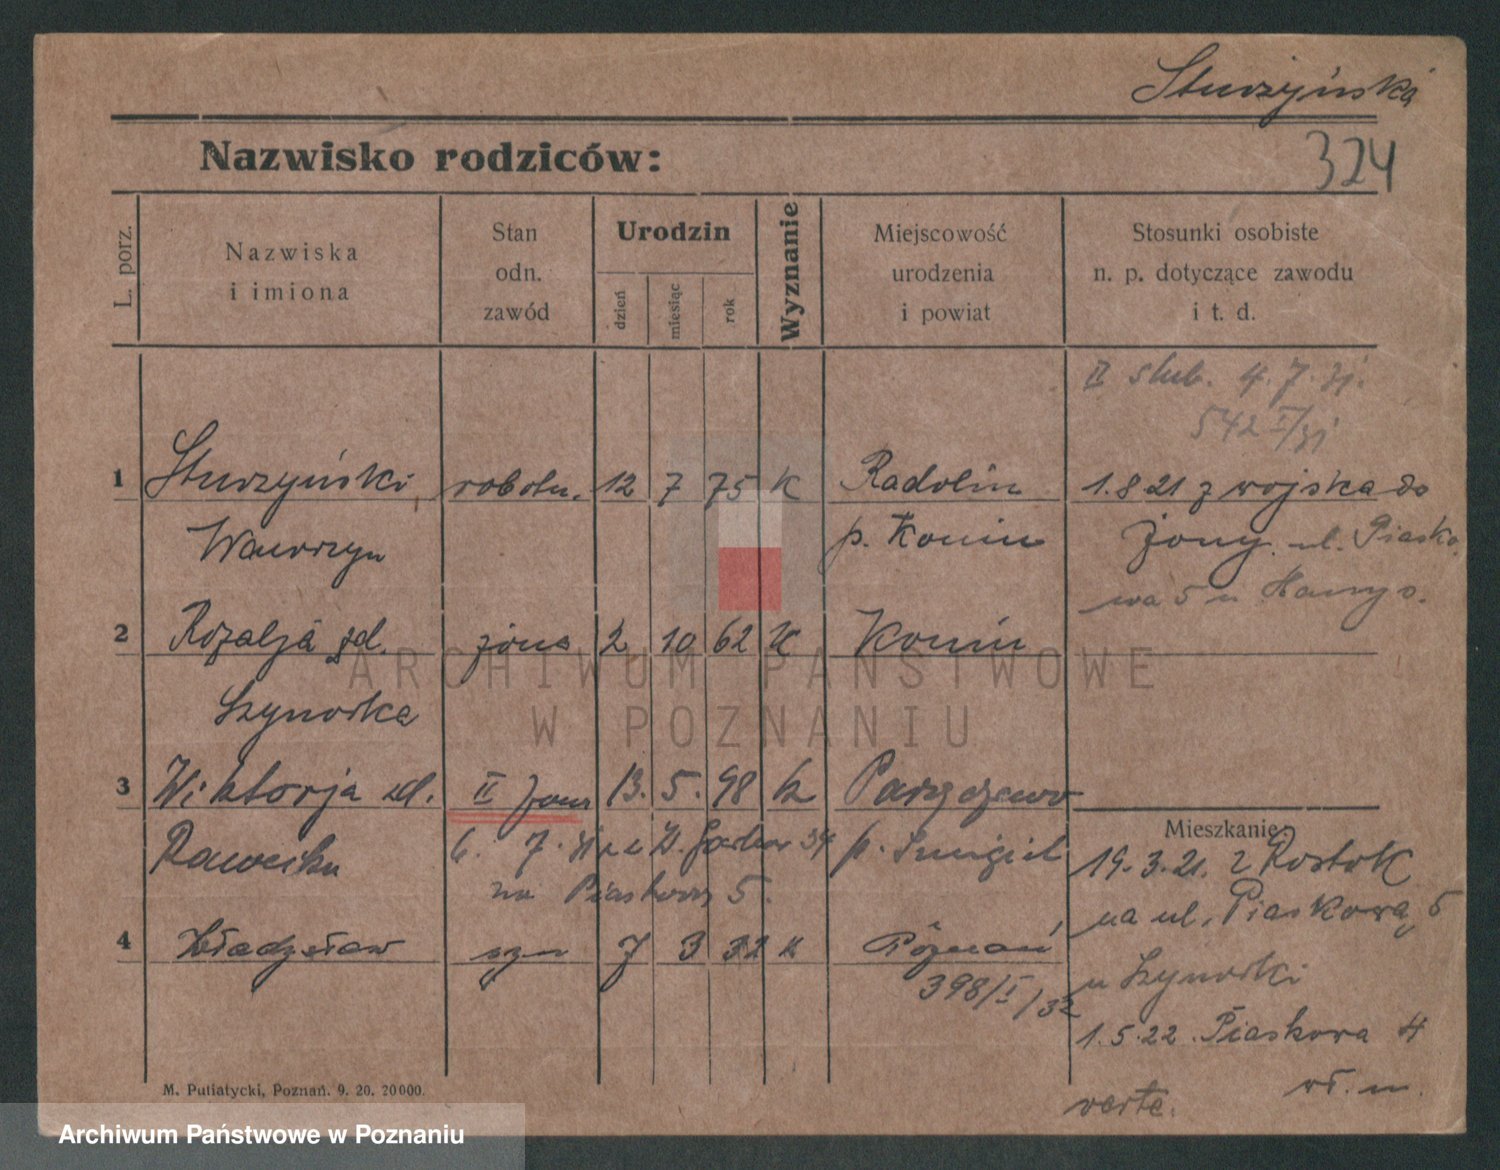 Sturzyńska
324
Nazwisko rodziców:
L. porz.
Nazwiska
i imiona
Stan
odn.
zawód
Urodzin
dzień
miesiąc
rok
Wyznanie
Miejscowość
urodzenia
i powiat
Stosunki osobiste
n. p. dotyczące zawodu
i t. d.
II slub. 4. 7. 31.
542 I/31
1 Sturzyński robotn. 12 7 75 K Radolin 1.8 21 z wojska do
Wawrzyn p. Konin żony. ul. Piasko
wa 5 u
2 Rozalja zd. żona 2 10 62 K Konin
Szynorka
3 Wiktorja zd. II żona 13. 5. 98 k
6. 7. 31 34 p. Śmigiel
na 5.
Mieszkanie:
19. 3. 21. z Rostok
na ul. Piaskową 5
u Szynorki
4 Władysław syn 7 3 32 k Poznań
398/I/32
1. 5. 22. Piaskowa 4
wł. m.
verte.
M. Putiatycki, Poznań. 9. 20. 20000.
ARCHIWUM PAŃSTWOWE
W POZNANIU
Archiwum Państwowe w Poznaniu